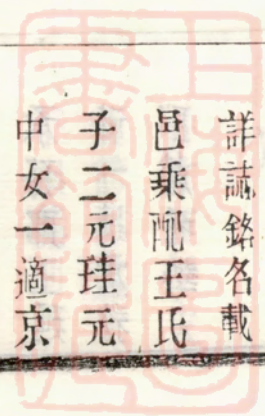 詳誌銘名載
邑乘配王氏
子二元珪元
中女一適京